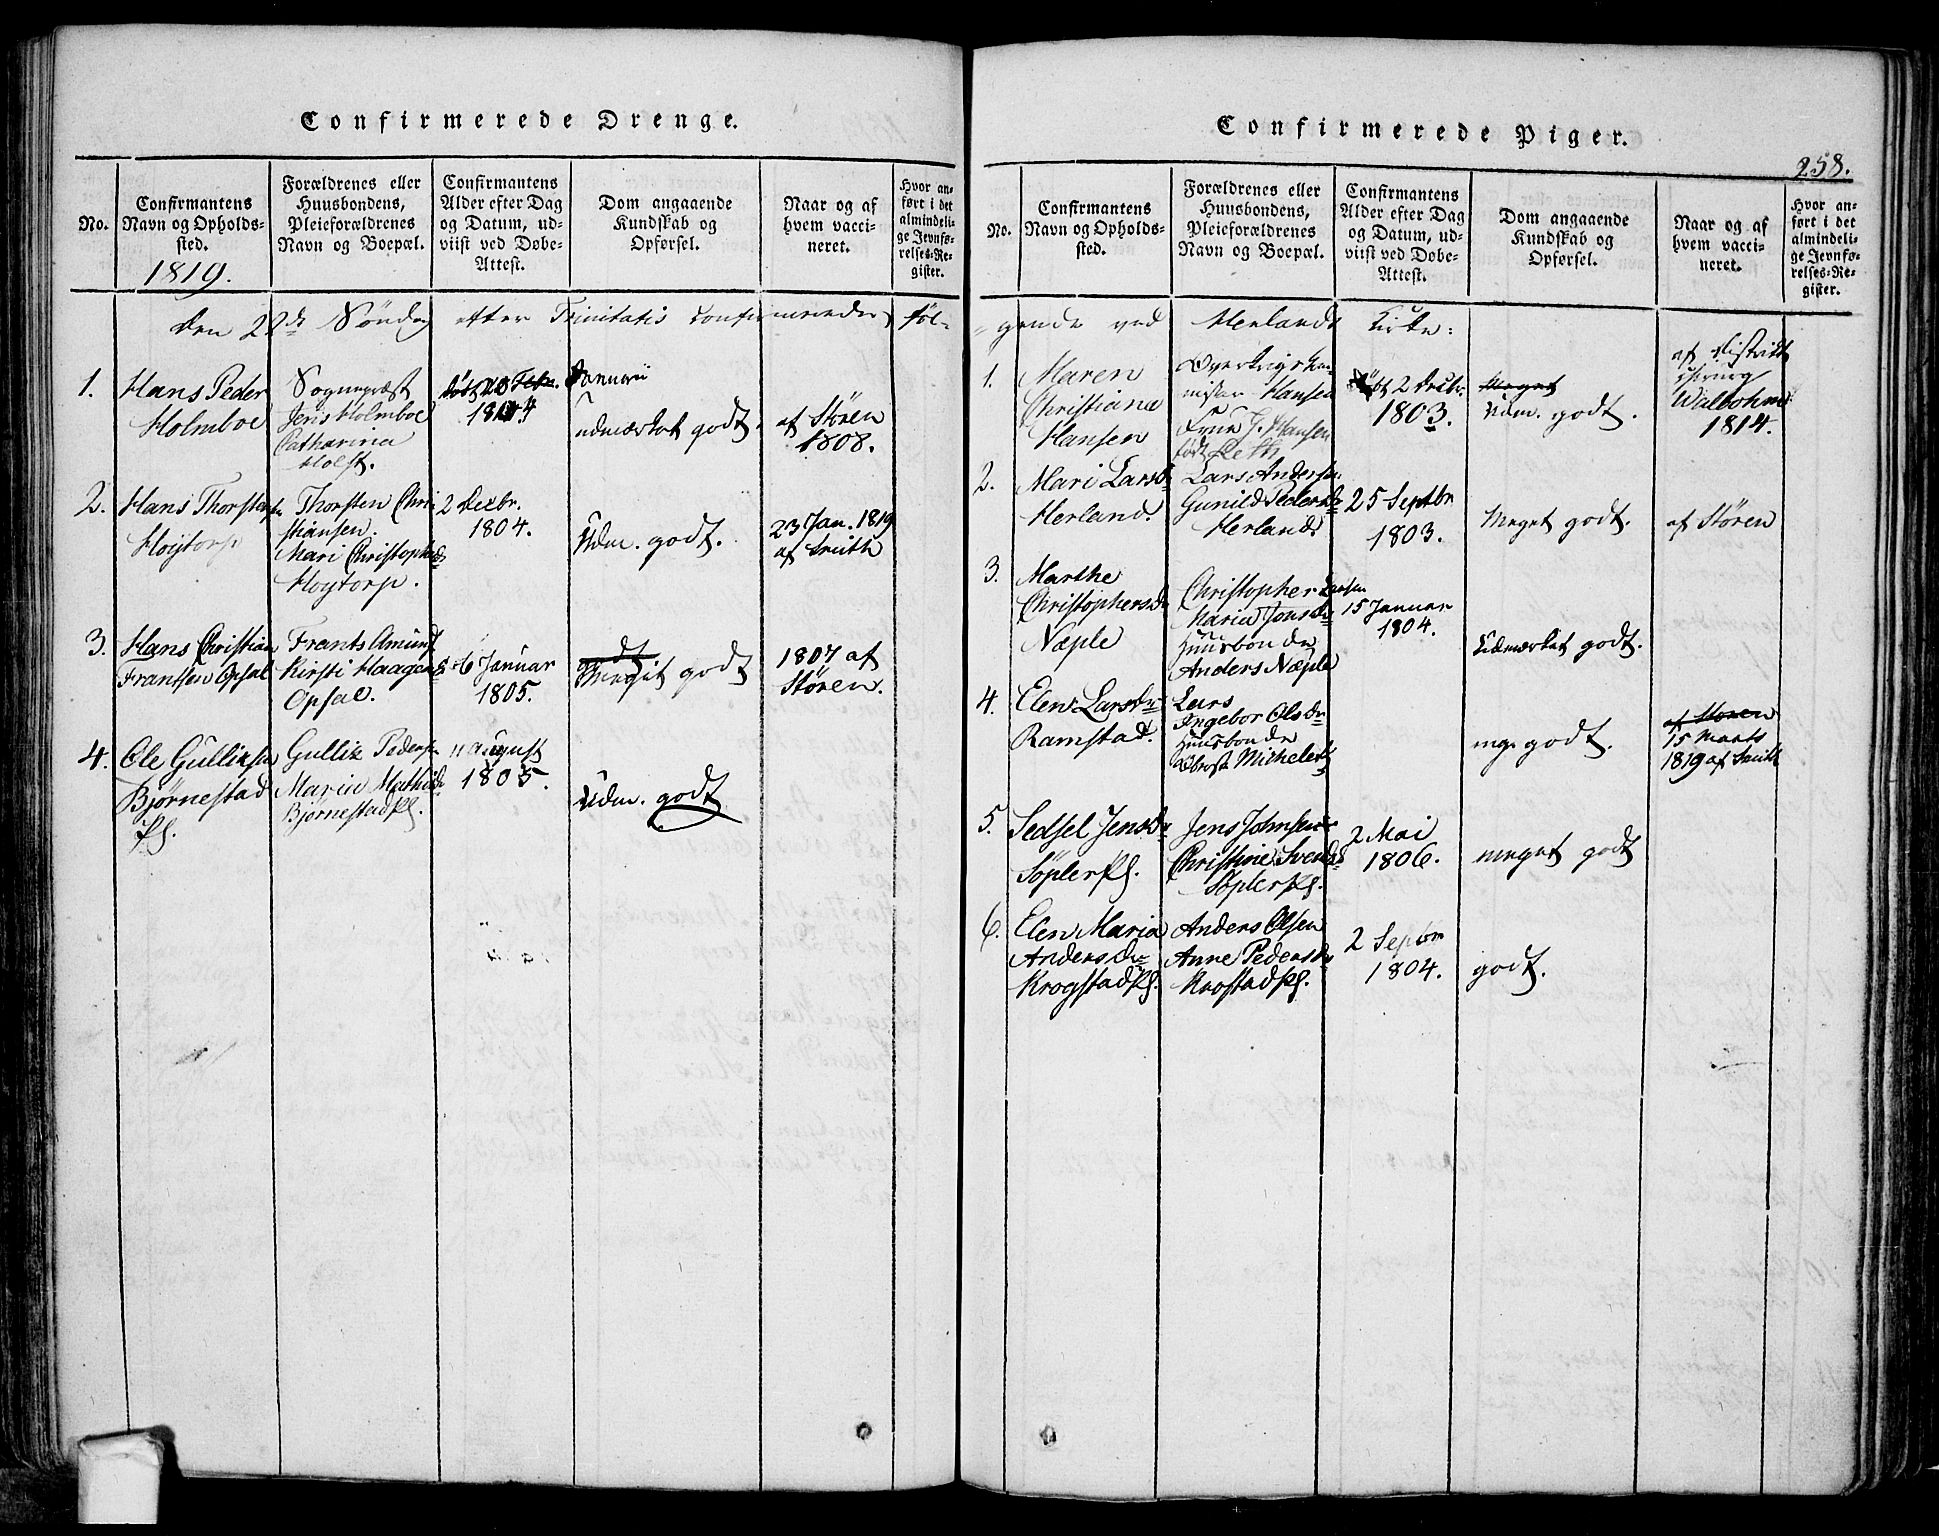 Confirmerede Drenge.
No.
Confirmantens
Navn og Opholds-
sted.
1819.
Forældrenes eller
Huusbondens,
Pleieforældrenes
Navn og Boepæl.
Confirmantens
Alder efter Dag
og Datum, ud-
viist ved Døbe-
Attest.
Dom angaaende
Kundskab og
Opførsel.
Naar og af
hvem vacci-
neret.
Hvor an-
ført i det
almindeli-
ge Jevnfø-
relses-Re-
gister.
Den 22de Søndag efter Trinitatis føl-
1.
Hans Peder
Holmboe
Sognepræst
Jens Holmboe
Catharina
Holst.
Januarii
1804
udmærket godt.
af Støren
1808.
2.
Hans Thorstensen
Hoytorp
Thorsten Chri
stiansen
Mari Christophsdr
Hoytorp.
2 Decbr.
1804.
Udm. godt.
23 Jan. 1819
af Smith
3.
Hans Christian
Frantsen Opsal
Frants Amunds
Kirsti Haagensd
Opsal.
6 Januar
1805.
godt
Meget godt
1807 af
Støren.
4.
Ole Gulliksen
Bjørnestad
Pl.
Gullik Pedersen
Maria Mathisdr
Bjørnestadpl.
11 august
1805.
Udm. godt
Confirmerede Piger.
258.
No.
Confirmantens
Navn og Opholds-
sted.
Forældrenes eller
Huusbondens,
Pleieforældrenes
Navn og Boepæl.
Confirmantens
Alder efter Dag
og Datum, ud-
viist ved Døbe-
Attest.
Dom angaaende
Kundskab og
Opførsel.
Naar og af
hvem vacci-
neret.
Hvor an-
ført i det
almindeli-
ge Jevnfø-
relses-Re-
gister.
gende ved Herlands Kirke:
1.
Maren
Christiana
Hansen
Overkrigskom
missær Hansen
Frue J. Hansen
født Leth
født 2 Decbr.
1803.
Meget
Udm. godt.
af District
chirurg
Walbohm
1814.
2.
Mari Larsdr
Herland.
Lars Andersen
Gunild Pedersdr
Herland.
25 Septbr
1803.
Meget godt.
af Støren
3.
Marthe
Christophersdr
Næple
Christopher Larsen
Maria Jonsdr
Huusbonde
Anders Næple
15 Januar
1804.
Udmærket godt.
4.
Elen Larsdr
Ramstad.
Lars
Ingebor Olsdr
Huusbonde
Obrist Michelet
meget godt.
af Støren
15 Marts
1819 af Smith
5.
Sedsel Jensdr
Søpler Pl.
Jens Johnsen
Christine Svendsd
Søpler Pl.
2 Mai
1806.
meget godt
6.
Elen Maria
Andersdr
Krogstad Pl.
Anders Olsen
Anne Pedersdr
Krostad Pl.
2 Septbr
1804.
godt.